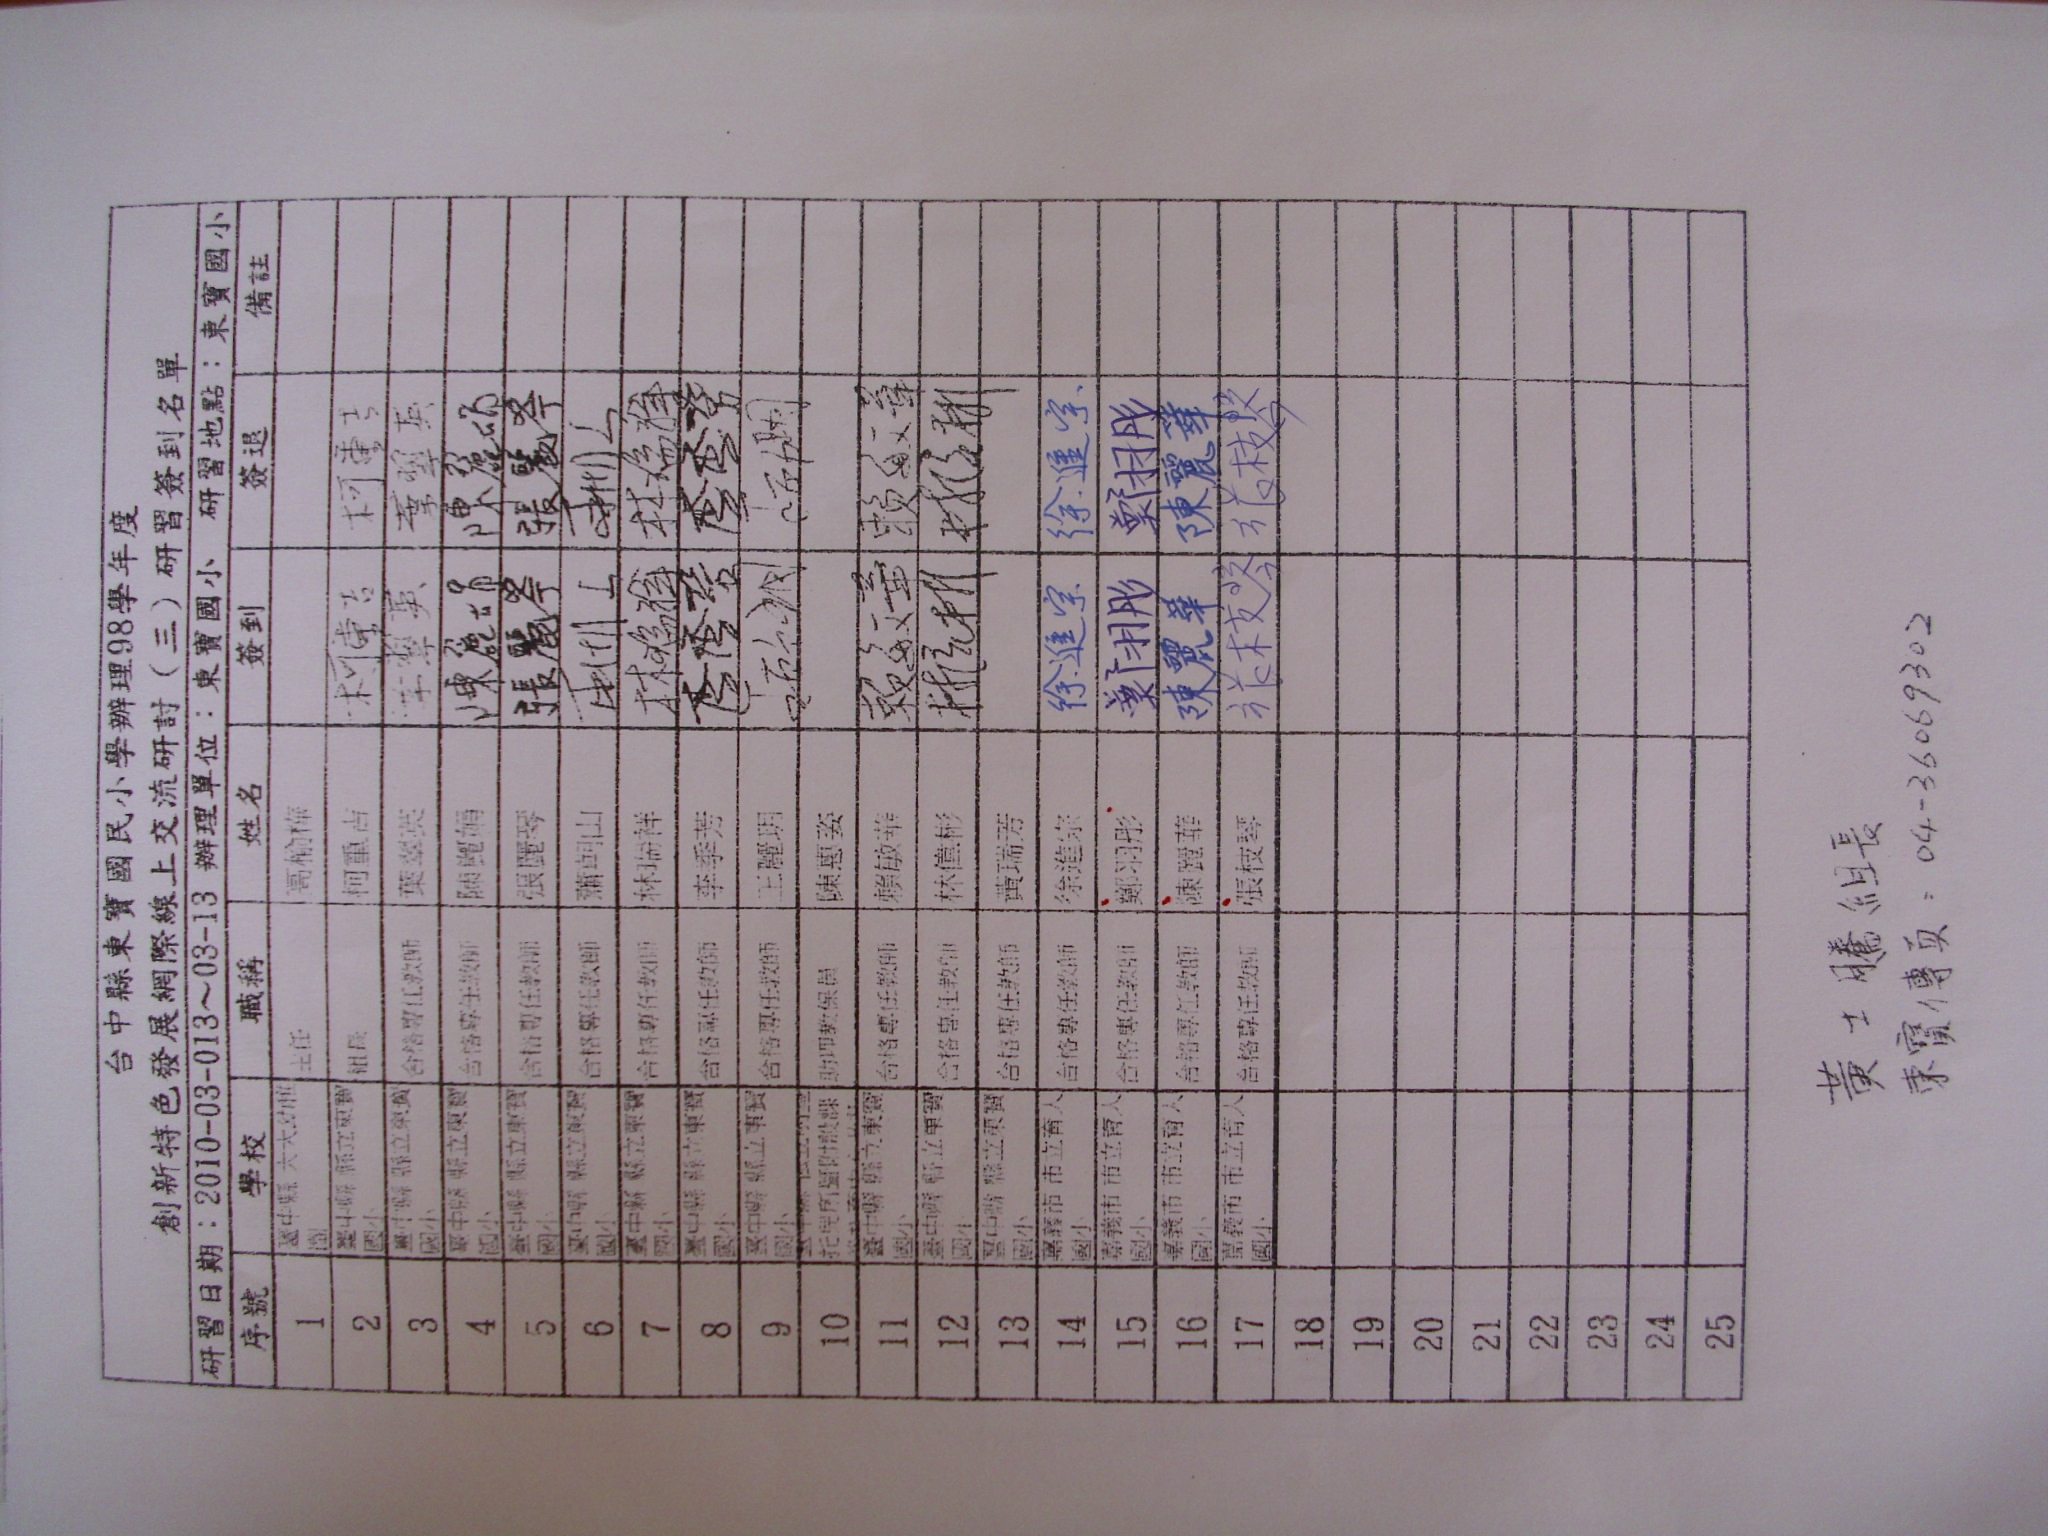 台中縣東寶國民小學辦理98學年度
創新特色發展網際線上交流研討(三)研習簽到名單
研習日期:2010-03-013~03-13 辦理單位:東寶國小 研習地點:東寶國小
序號 學校 職稱 姓名 簽到 簽退 備註
1 主任
2 臺中縣縣立東寶國小 組長 柯重吉 柯重吉 柯重吉
3 臺中縣縣立東寶國小 合格專任教師 葉翠英
4 臺中縣縣立東寶國小 合格專任教師 陳麗娟 陳麗娟 陳麗娟
5 臺中縣縣立東寶國小 合格專任教師 張麗琴 張麗琴 張麗琴
6 臺中縣縣立東寶國小 合格專任教師
7 臺中縣縣立東寶國小 合格專任教師 林瑞祥 林瑞祥 林瑞祥
8 臺中縣縣立東寶國小 合格專任教師 李季芳
9 臺中縣縣立東寶國小 合格專任教師 王麗玥
10 助理教保員 陳惠姿
11 臺中縣縣立東寶國小 合格專任教師 賴敏華 賴敏華 賴敏華
12 臺中縣縣立東寶國小 合格專任教師 林億彬
13 臺中縣縣立東寶國小 合格專任教師 黃瑞芳
14 嘉義市市立育人國小 合格專任教師 徐進宗 徐進宗 徐進宗
15 嘉義市市立育人國小 合格專任教師 鄭羽彤 鄭羽彤 鄭羽彤
16 嘉義市市立育人國小 合格專任教師 陳麗華 陳麗華 陳麗華
17 嘉義市市立育人國小 合格專任教師 張枝琴 張枝琴 張枝琴
18
19
20
21
22
23
24
25
黃士騰組長
東寶傳真:04-36069302